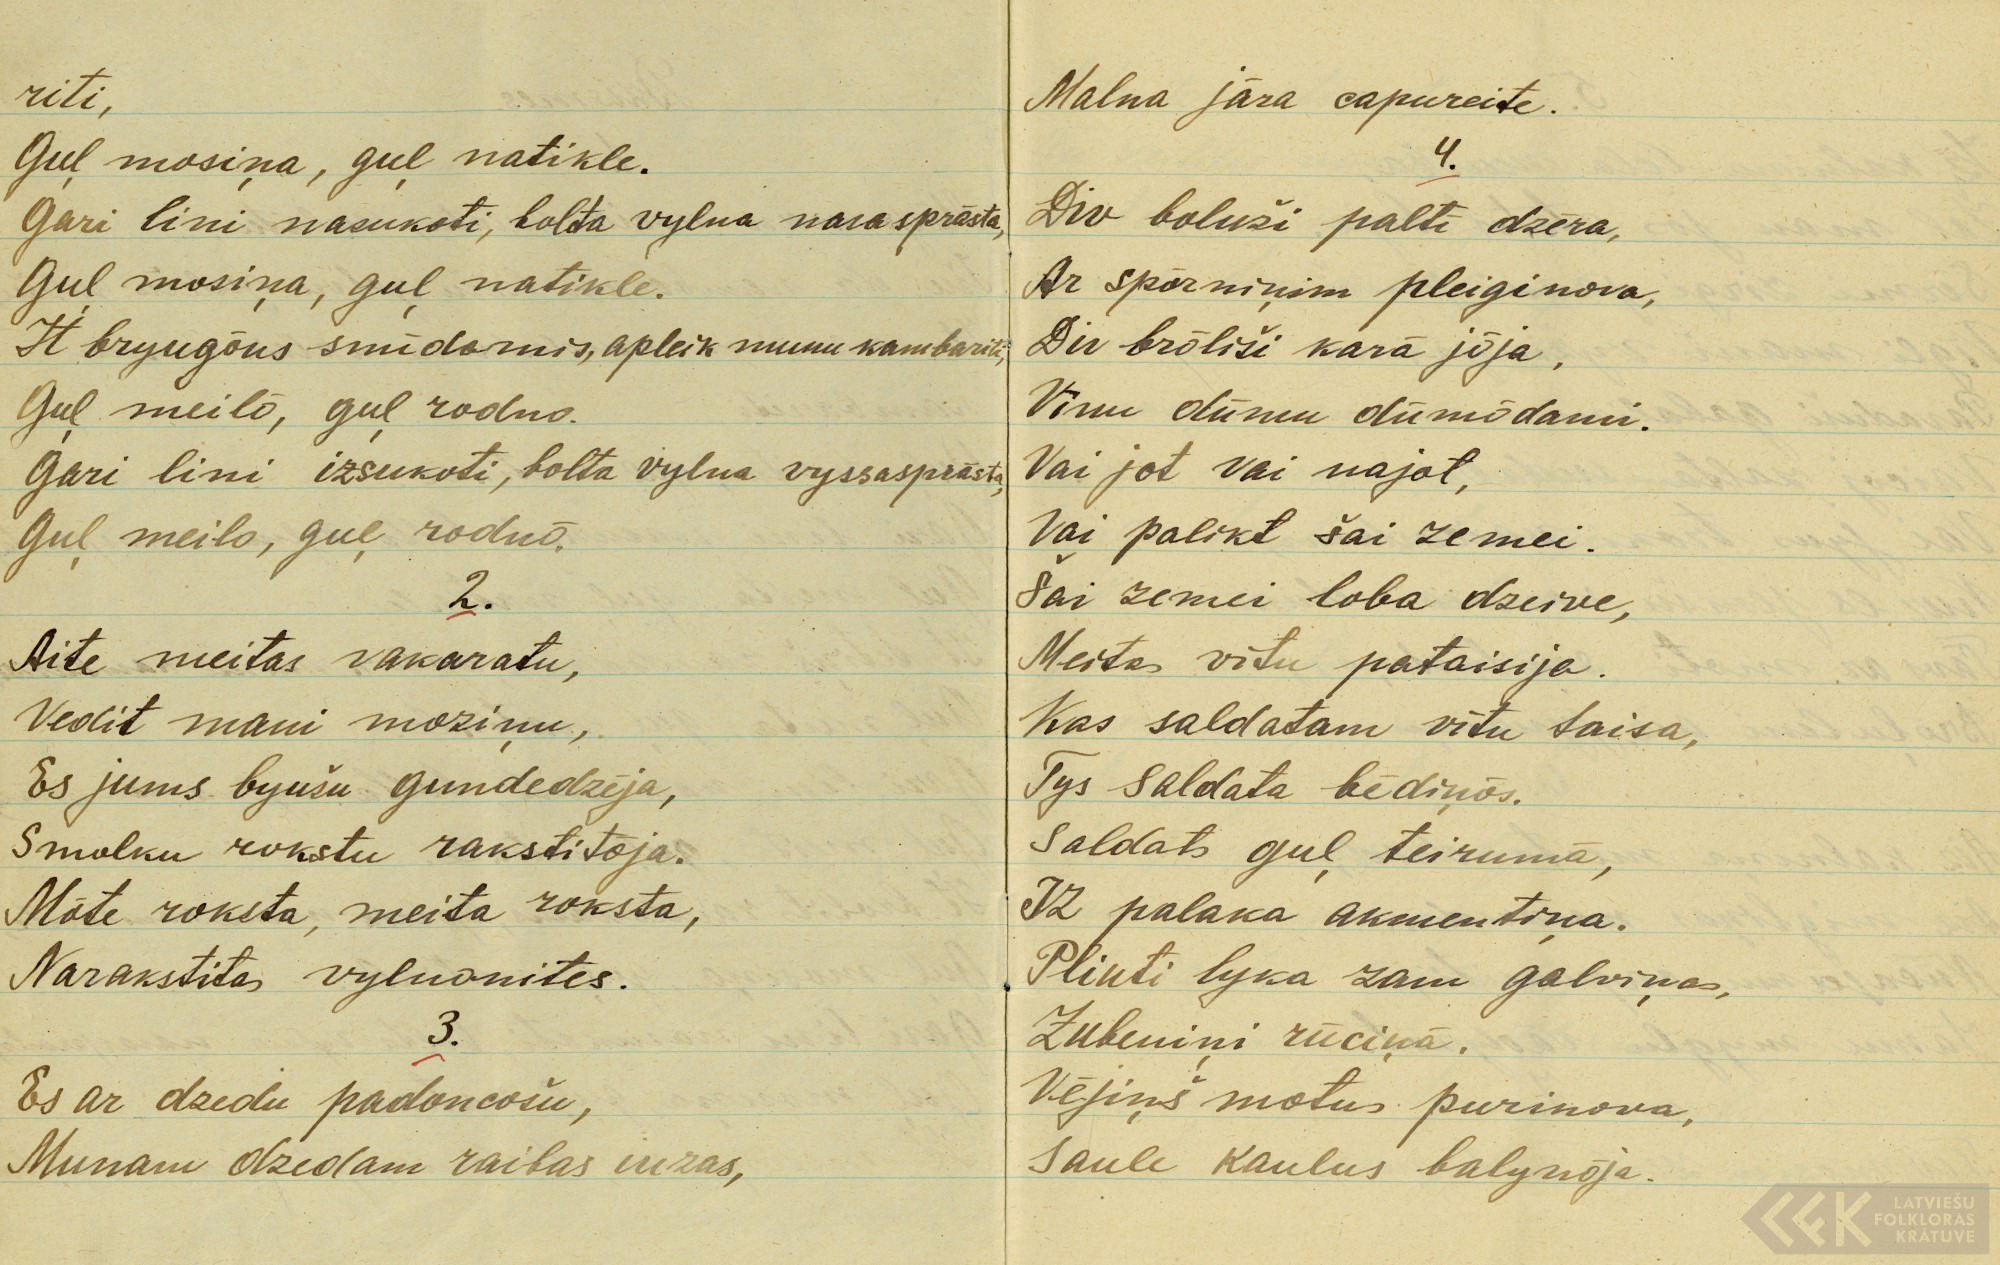 riti,
Guļ mosiņa, guļ natikle.
Gari lini nasukoti, bolta vylna nasasprāsta,
Guļ mosiņa, guļ natikle.
It bryugōns smīdamis, apleik munu kambariti,
Guļ meilō, guļ rodno.
Gari lini izsukoti, bolta vylna vyssasprāsta,
Guļ meilo, guļ rodnō.
2.
Aite meitas vakaratu,
Vedit mani moziņu,
Es jums byušu gundedzēja,
Smolku rokstu rakstitōja.
Mōte roksta, meita roksta,
Narakstitas vylnonites.
3.
Es ar dzedu padoncošu,
Munam dzedam raibas iuzas,
Malna jāra capureite.
4.
Div boluži paltī dzēra,
Ar spōrniņim pleiginova,
Div brōliši karā jōja,
Vīnu dūmu dūmōdami.
Vai jot vai najot,
Vai palikt šai zemei.
Šai zemei loba dzeive,
Meitas vītu pataisija.
Kas saldatam vītu taisa,
Tys saldata bēdiņōs.
Saldats guļ teirumā,
Iz palaka akmentiņa.
Plinti lyka zam galviņas,
Zubeniņi rūciņā.
Vējiņš motus purinova,
Saule kaulus balynōja.
LATVIEŠU
FOLKLORAS
KRĀTUVE